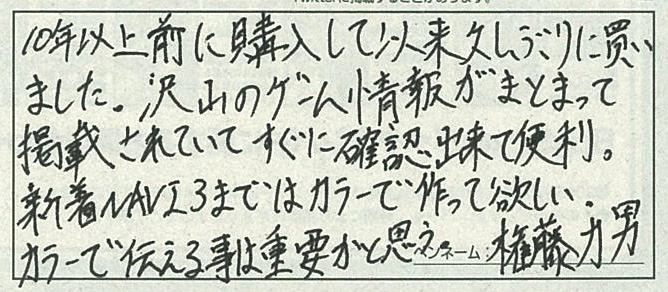 10年以上前に購入して以来久しぶりに買い
ました。沢山のゲーム情報がまとまって
掲載されていてすぐに確認出来て便利。
新着NAVI3まではカラーで作って欲しい。
カラーで伝える事は重要かと思う。
ペンネーム:権藤力男